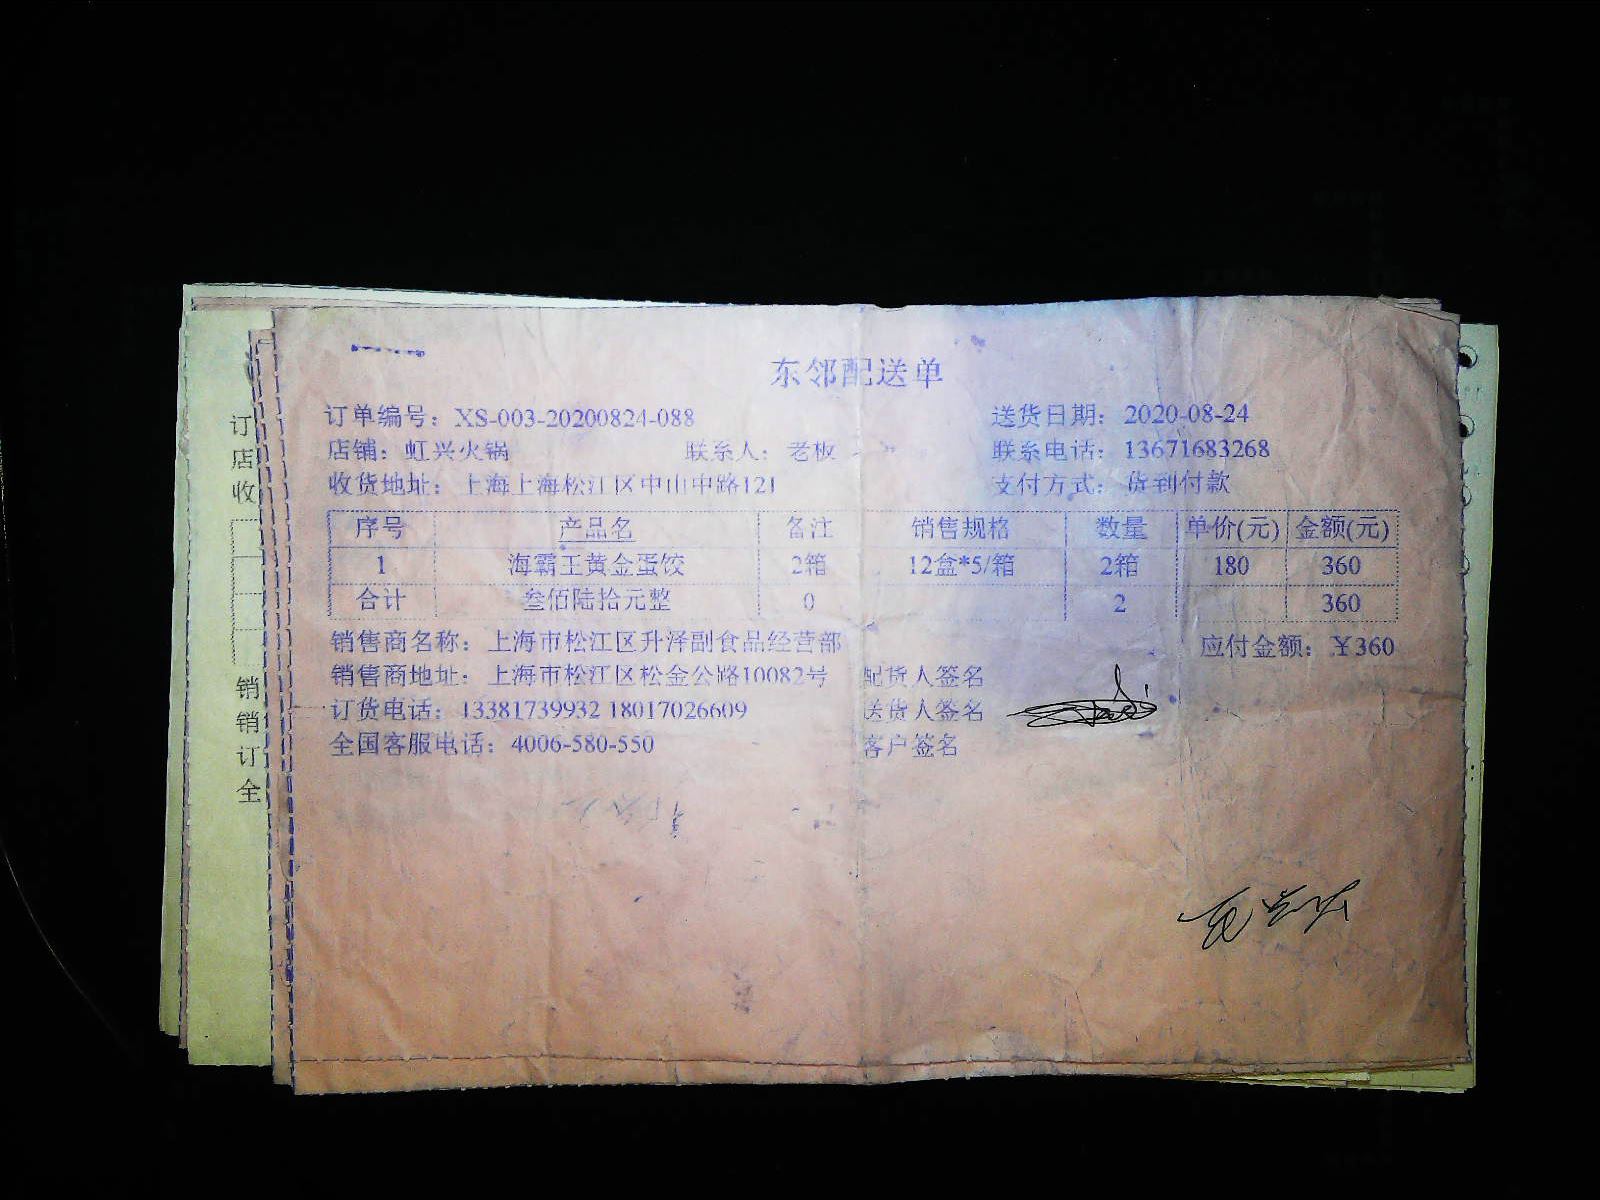 东邻配送单
订单编号：XS-003-20200824-088 送货日期：2020-08-24
店铺：虹兴火锅 联系人：老板 联系电话：13671683268
收货地址：上海上海松江区中山中路121 支付方式：货到付款
序号 产品名 备注 销售规格 数量 单价(元) 金额(元)
1 海霸王黄金蛋饺 2箱 12盒*5/箱 2箱 180 360
合计 叁佰陆拾元整 0 2 360
销售商名称：上海市松江区升泽副食品经营部 应付金额：￥360
销售商地址：上海市松江区松金公路10082号 配货人签名
订货电话：13381739932 18017026609 送货人签名
全国客服电话：4006-580-550 客户签名
订
店
收
销
销
订
全